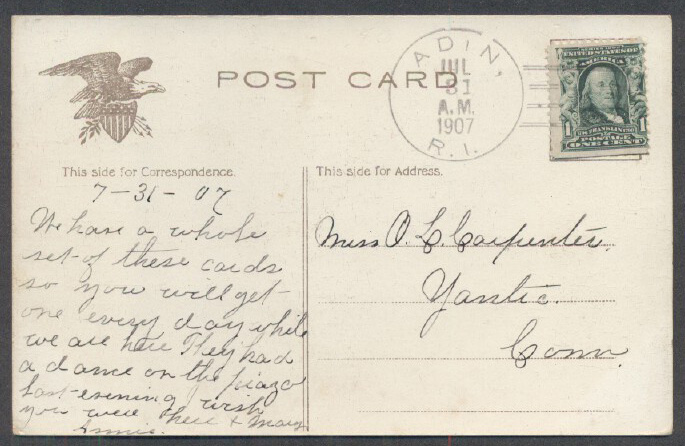 POST CARD
ADIN,
JUL
31
A.M.
1907
R.I.
SERIES 1902
UNITED STATES OF
AMERICA
1 1
FRANKLIN
POSTAGE
ONE CENT
This side for Correspondence.
This side for Address.
7-31-07
We have a whole
set of these cards
so you will get
one every day while
we are here They had
a dance on the piaza
last evening wish
you were here & Mary
Annie.
Miss O. L. Carpenter.
Yantic.
Conn.